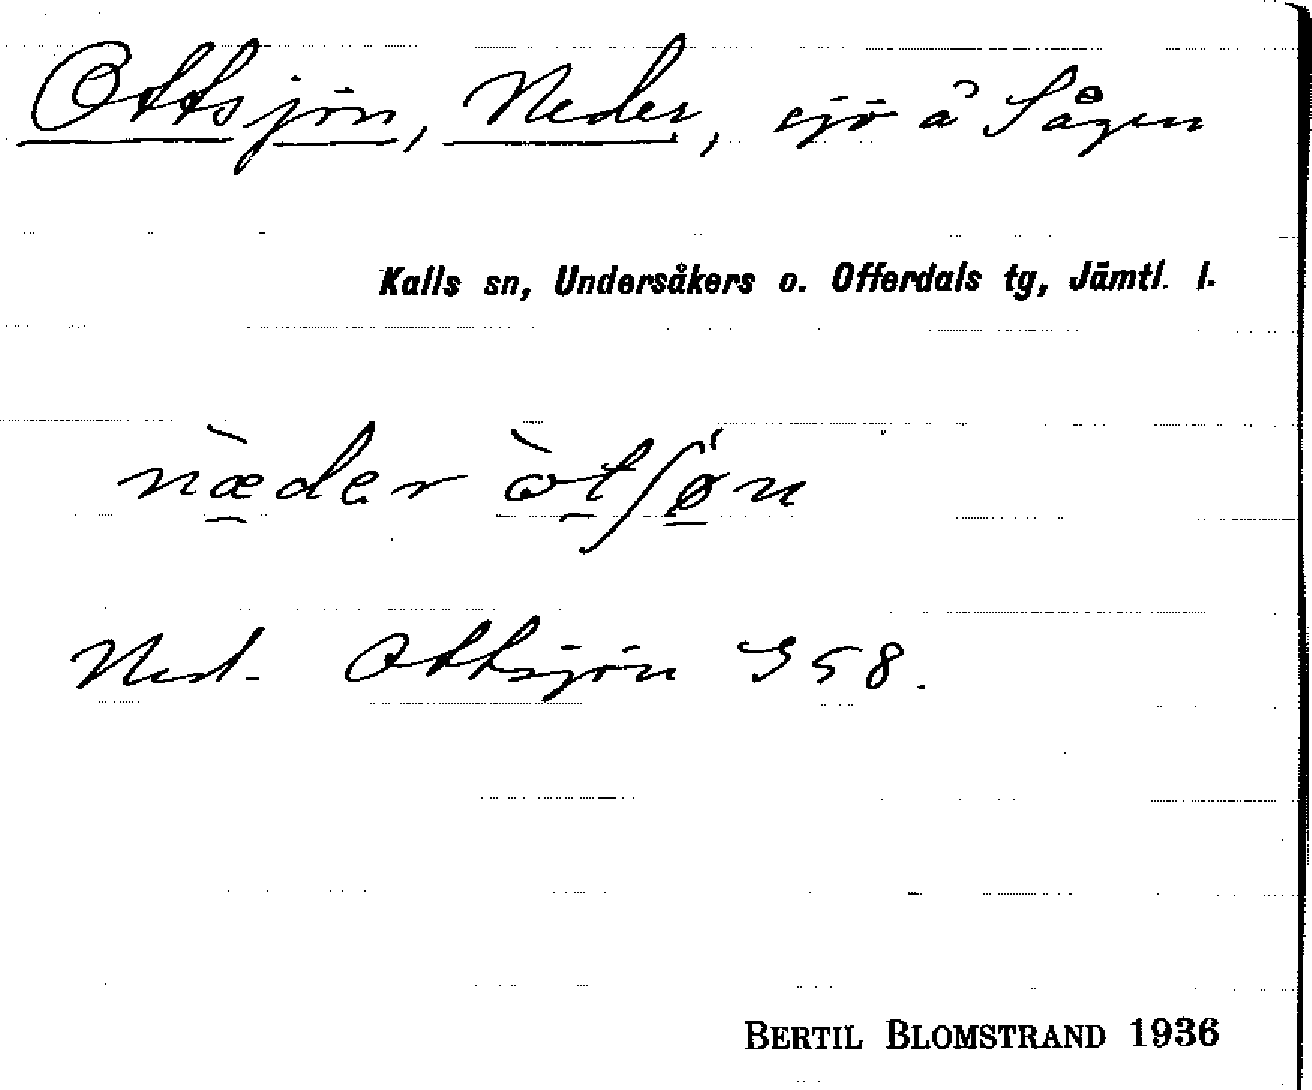 Ottsjön, Neder, sjö å Sågen
Kalls sn, Undersåkers o. Offerdals tg, Jämtl. l.
næ̀der òtʃøn
Ned. Ottsjön S 58.
BERTIL BLOMSTRAND 1936